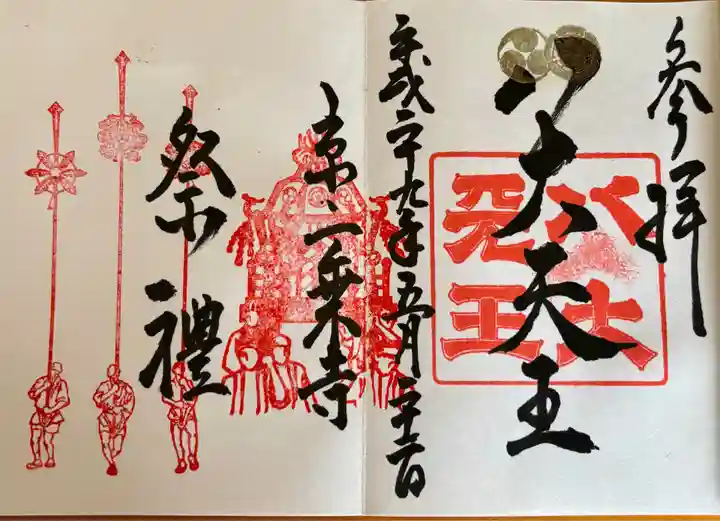 参拝
八大天王
八大
天王
平成二十九年五月二十二日
京・一乗寺
祭禮